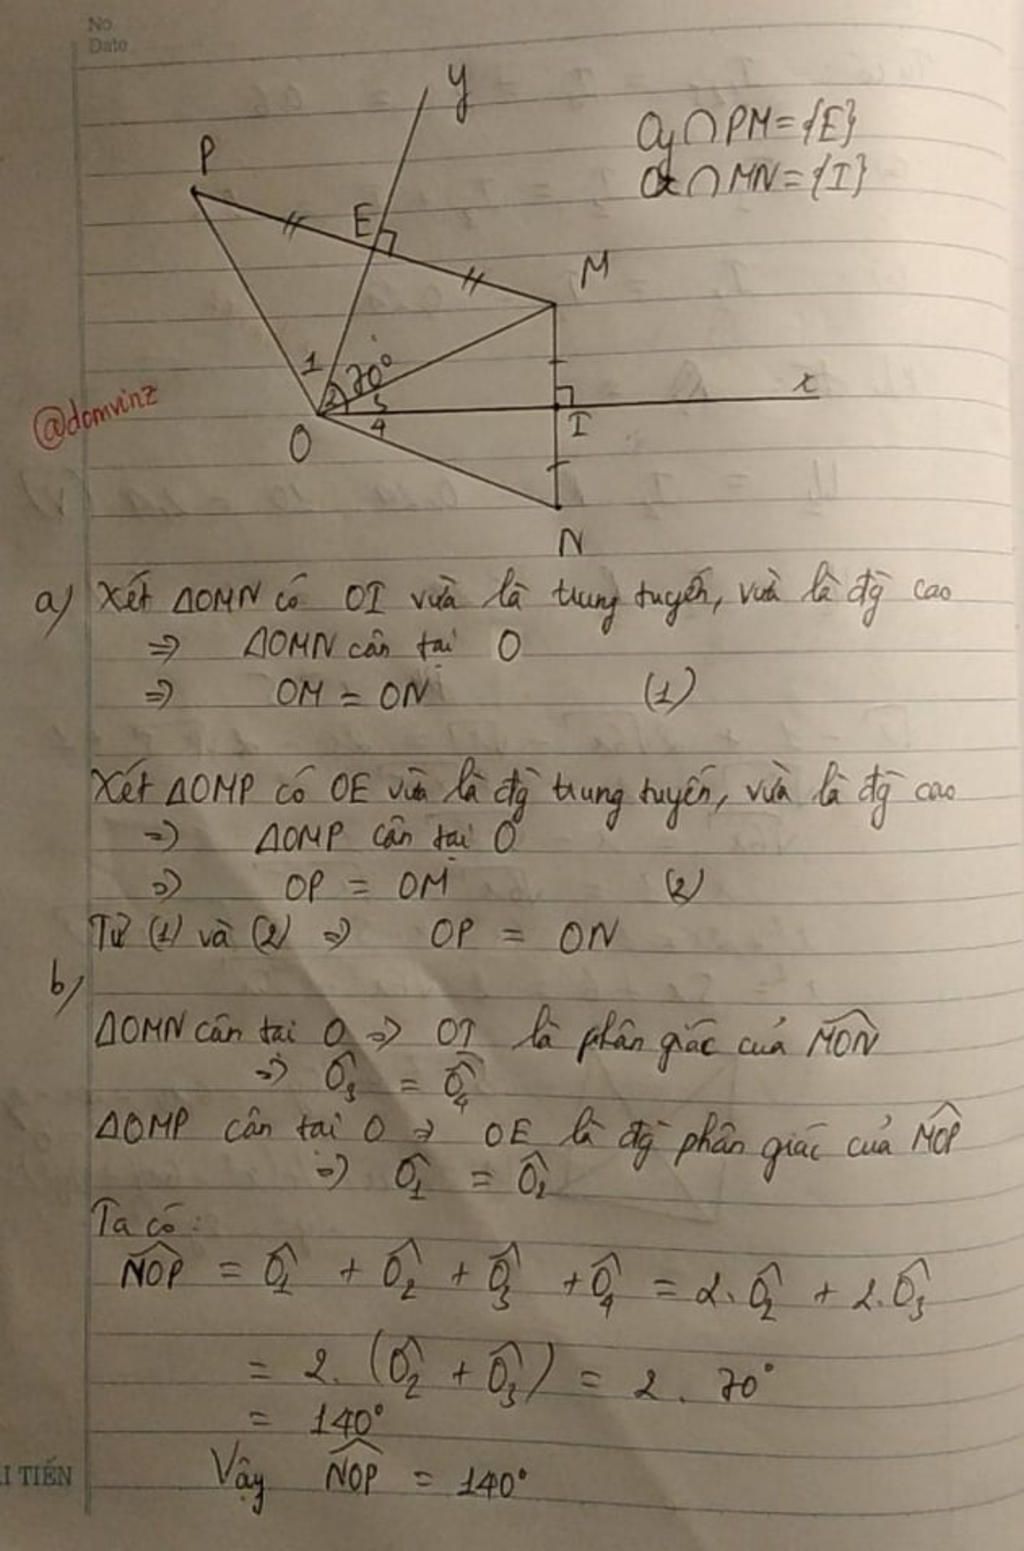 No
Date
y
P
Oy ∩ PM = {E}
Ox ∩ MN = {I}
E
M
1
2
70°
3
x
@domvinz
4
I
O
N
a) Xét ΔOMN có OI vừa là trung tuyến, vừa là đg̀ cao
⇒ ΔOMN cân tại O
⇒ OM = ON (1)
Xét ΔOMP có OE vừa là đg̀ trung tuyến, vừa là đg̀ cao
⇒ ΔOMP cân tại O
⇒ OP = OM (2)
Từ (1) và (2) ⇒ OP = ON
b)
ΔOMN cân tại O ⇒ OI là phân giác của MON^
⇒ Ô3 = Ô4
ΔOMP cân tại O ⇒ OE là đg̀ phân giác của MOP^
⇒ Ô1 = Ô2
Ta có:
NOP^ = Ô1 + Ô2 + Ô3 + Ô4 = 2.Ô2 + 2.Ô3
= 2.(Ô2 + Ô3) = 2 . 70°
= 140°
Vậy NOP^ = 140°
I TIẾN